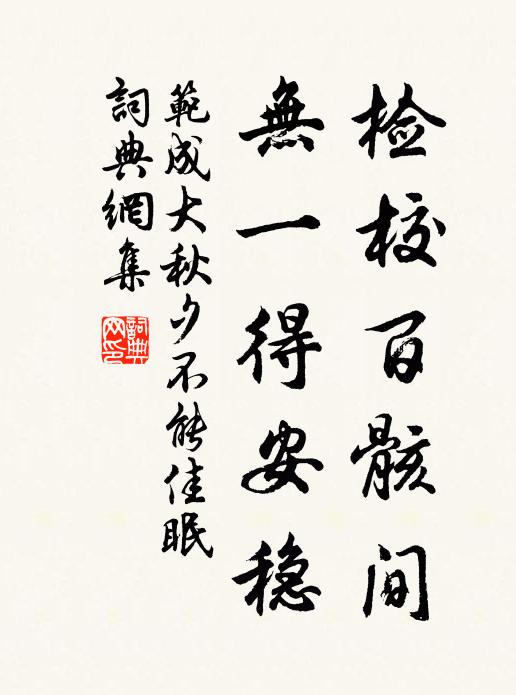 检校百骸间
無一得安稳
範成大秋夕不能佳眠
詞典網集
詞典网印